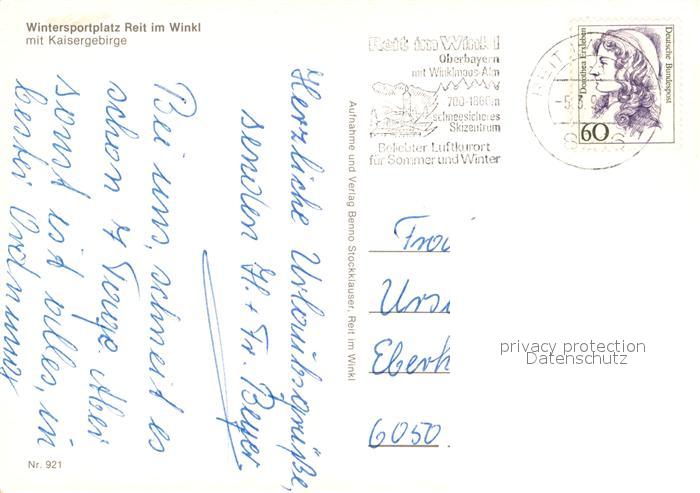 Wintersportplatz Reit im Winkl
mit Kaisergebirge
Herzliche Urlaubsgrüße,
senden H. + Fr. Beyer
Bei uns, schneit es
schon 7 Tage. Aber
sonst ist alles, in
bester Ordnung
Nr. 921
Aufnahme und Verlag Benno Stockklauser, Reit im Winkl
Reit im Winkl
Oberbayern
mit Winklmoos-Alm
700-1860m
schneesicheres
Skizentrum
Beliebter Luftkurort
für Sommer und Winter
REIT
Deutsche Bundespost
Dorothea Erxleben
60
Frau
Ursu
Eberh
6050
privacy protection
Datenschutz